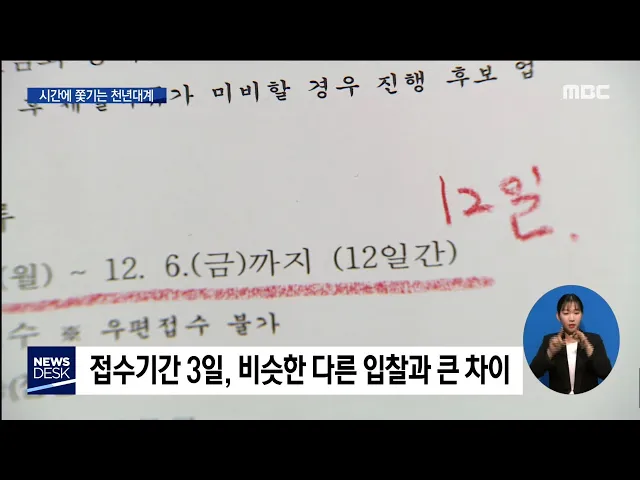 시간에 쫓기는 천년대계
MBC
가 미비할 경우 진행 후보 업
12일.
(월) ~ 12. 6.(금)까지 (12일간)
수 ※ 우편접수 불가
NEWS DESK
접수기간 3일, 비슷한 다른 입찰과 큰 차이